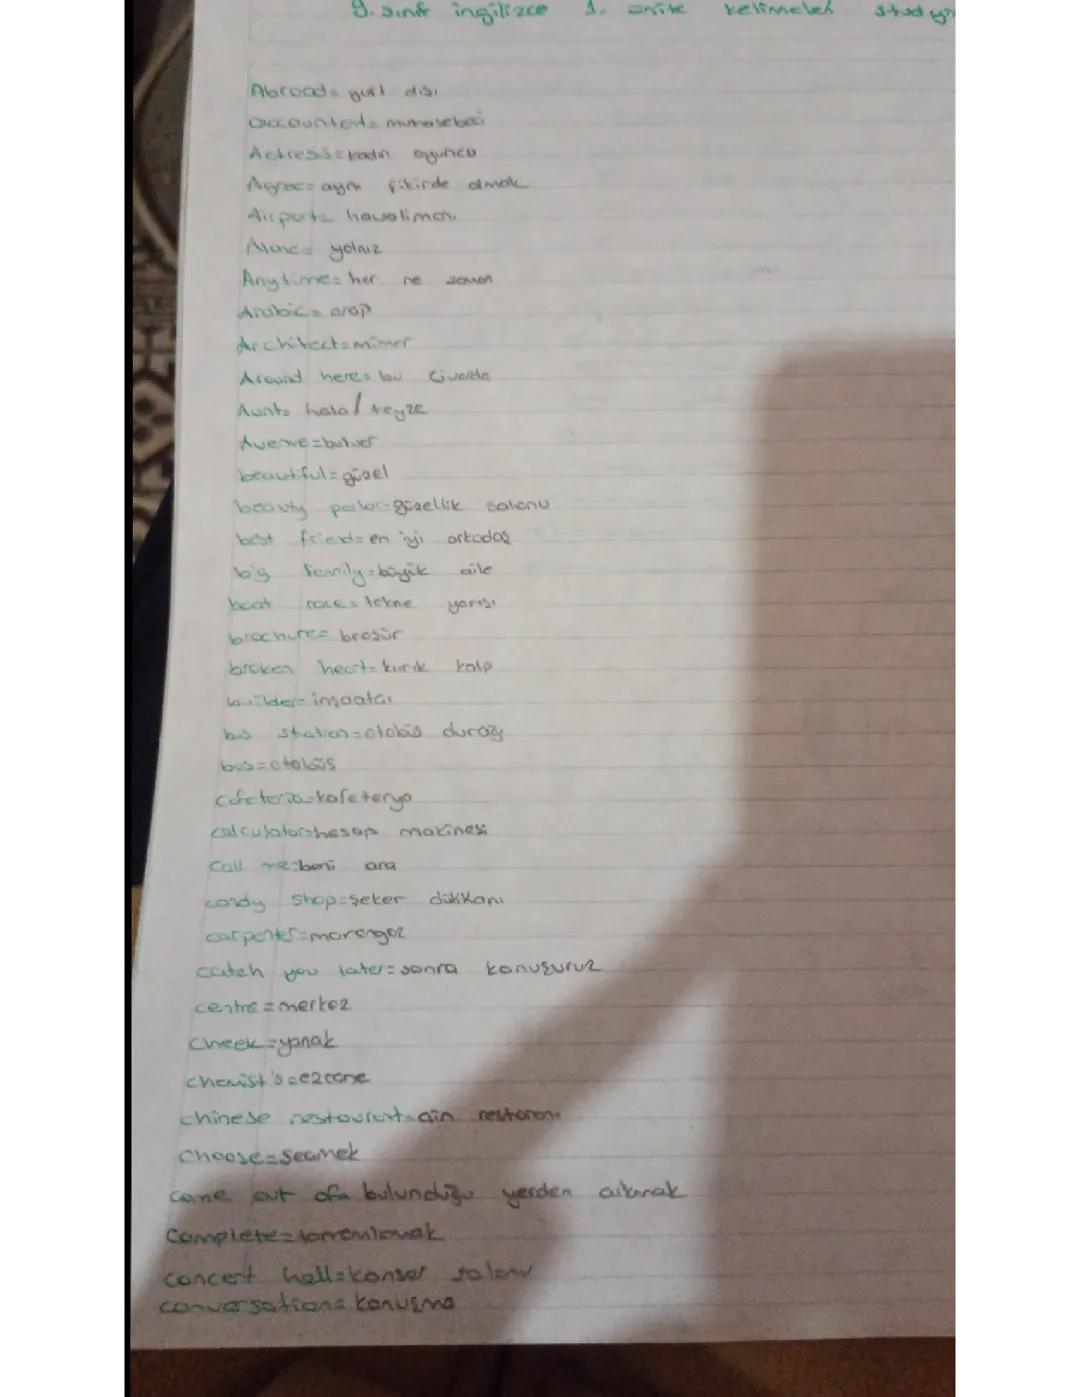 9. sınıf ingilizce 1. ünite kelimeleri
Abroad= yurt dışı
accountant= muhasebeci
Actress= kadın oyuncu
Agree= aynı fikirde olmak
Airport= havalimanı
Alone= yalnız
Anytime= her ne zaman
Arabic= arap
Architect=mimar
Around here= bu civarda
Aunt= hala/teyze
Avenue=bulvar
beautiful=güzel
beauty parlor=güzellik salonu
best friend=en iyi arkadaş
big family=büyük aile
boat race=tekne yarışı
brochure= broşür
broken heart=kırık kalp
builder=inşaatcı
bus station=otobüs durağı
bus=otobüs
cafeteria=kafeterya
calculator=hesap makinesi
call me=beni ara
candy shop=şeker dükkanı
carpenter=marangoz
catch you later=sonra konuşuruz
centre=merkez
cheek=yanak
chemist's=eczane
chinese restaurant=çin restoranı
choose=seçmek
come out of= bulunduğu yerden çıkmak
complete=tamamlamak
concert hall=konser salonu
conversation= konuşma